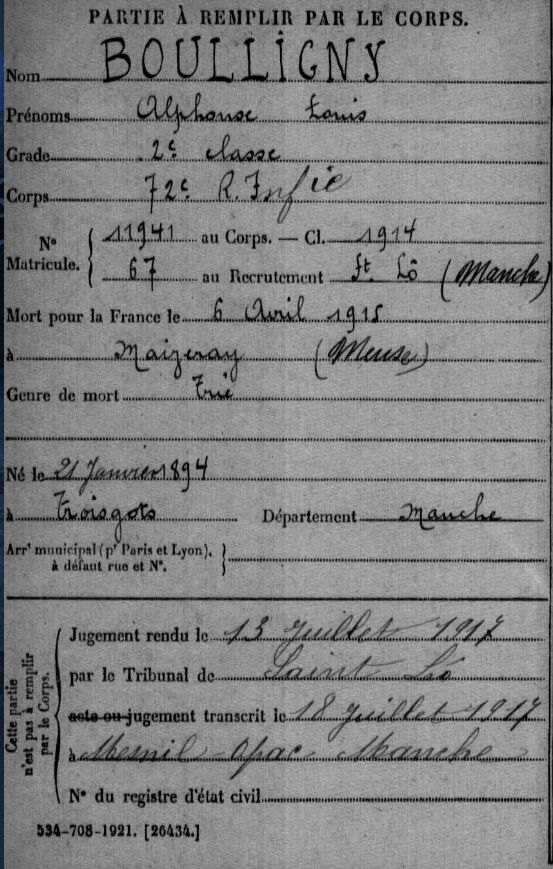 PARTIE À REMPLIR PAR LE CORPS.
Nom BOULLIGNY
Prénoms Alphonse Louis
Grade 2e classe
Corps 72e R. Infie
N° Matricule. { 11941 au Corps. — Cl. 1914
67 au Recrutement St. Lô (Manche)
Mort pour la France le 6 Avril 1915
à Maizeray (Meuse)
Genre de mort Tué
Né le 21 Janvier 1894
à Troisgots Département Manche
Arrt municipal (pr Paris et Lyon), }
à défaut rue et N°.
Cette partie n'est pas à remplir par le Corps.
Jugement rendu le 13 Juillet 1917
par le Tribunal de Saint Lô
acte ou jugement transcrit le 18 Juillet 1917
à Mesnil-Opac Manche
N° du registre d'état civil
534-708-1921. [26434.]